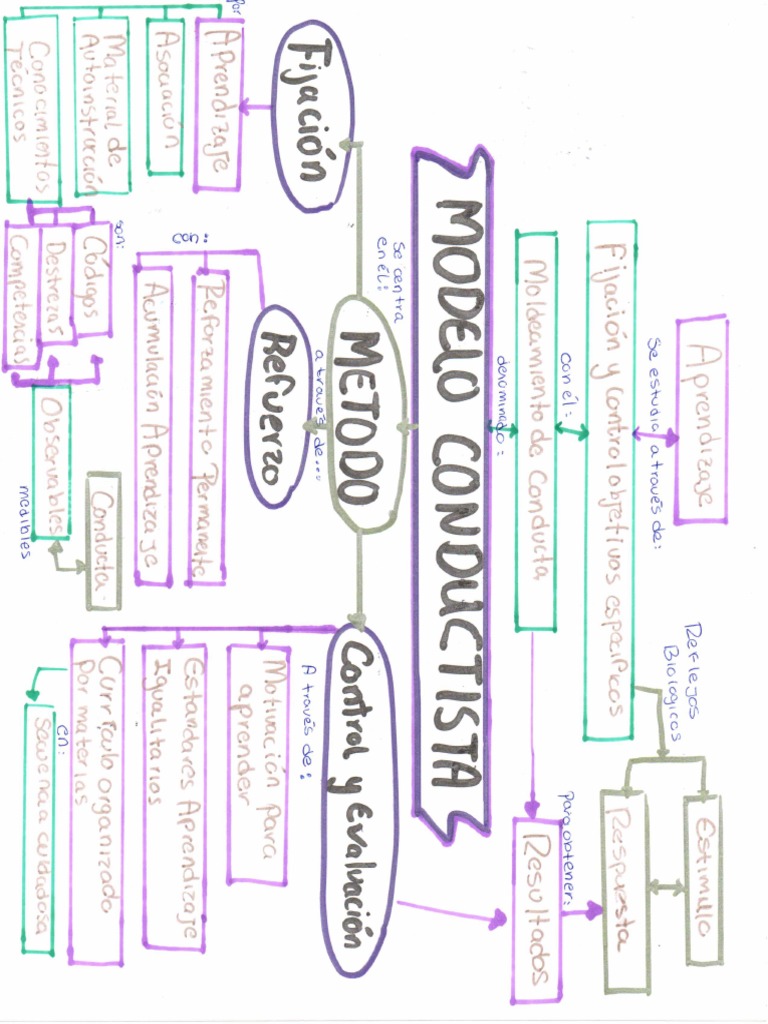 Aprendizaje
Se estudia a través de:
Fijación y control objetivos especificos
con él:
Moldeamiento de Conducta
denominado:
Reflejos
Biologicos
Estimulo
Respuesta
para obtener:
Resultados
MODELO CONDUCTISTA
Se centra
en él:
METODO
a través de...
Fijación
Aprendizaje
por
Asociación
Material de
Autoinstrucción
Conocimientos
Técnicos
son:
Códigos
Destrezas
Competencias
Observables
medibles
Conducta
Refuerzo
con:
Reforzamiento Permanente
Acumulación Aprendizaje
Control y Evaluación
A través de:
Motivación para
aprender
Estandares Aprendizaje
Igualitarios
Currículo organizado
por materias
en:
cuidadosa